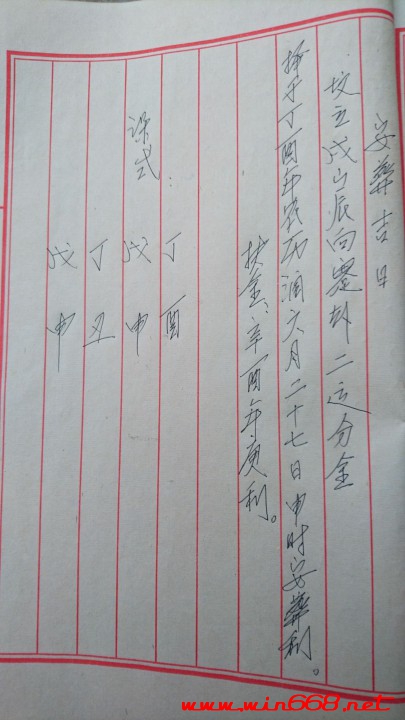 安葬吉日
坟立戌山辰向蹇卦二运分金
择于丁酉年农历润六月二十七日申时安葬利。
扶金、辛酉年庚利。
课式：
丁酉
戊申
丁丑
戊申
www.win668.net